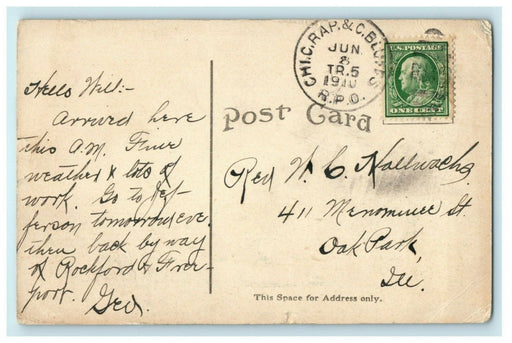 Hello Will:-
Arrived here
this A.M. Fine
weather & lots of
work. Go to Jef-
ferson tomorrow eve.
then back by way
of Rockford & Free-
port.
Geo.
CHI.C.RAP.& C.BLUFFS
JUN
8
TR.5
1910
R.P.O.
U.S. POSTAGE
ONE CENT
Post Card
Rev W. C.
411 Menominee St.
Oak Park,
Ill.
This Space for Address only.